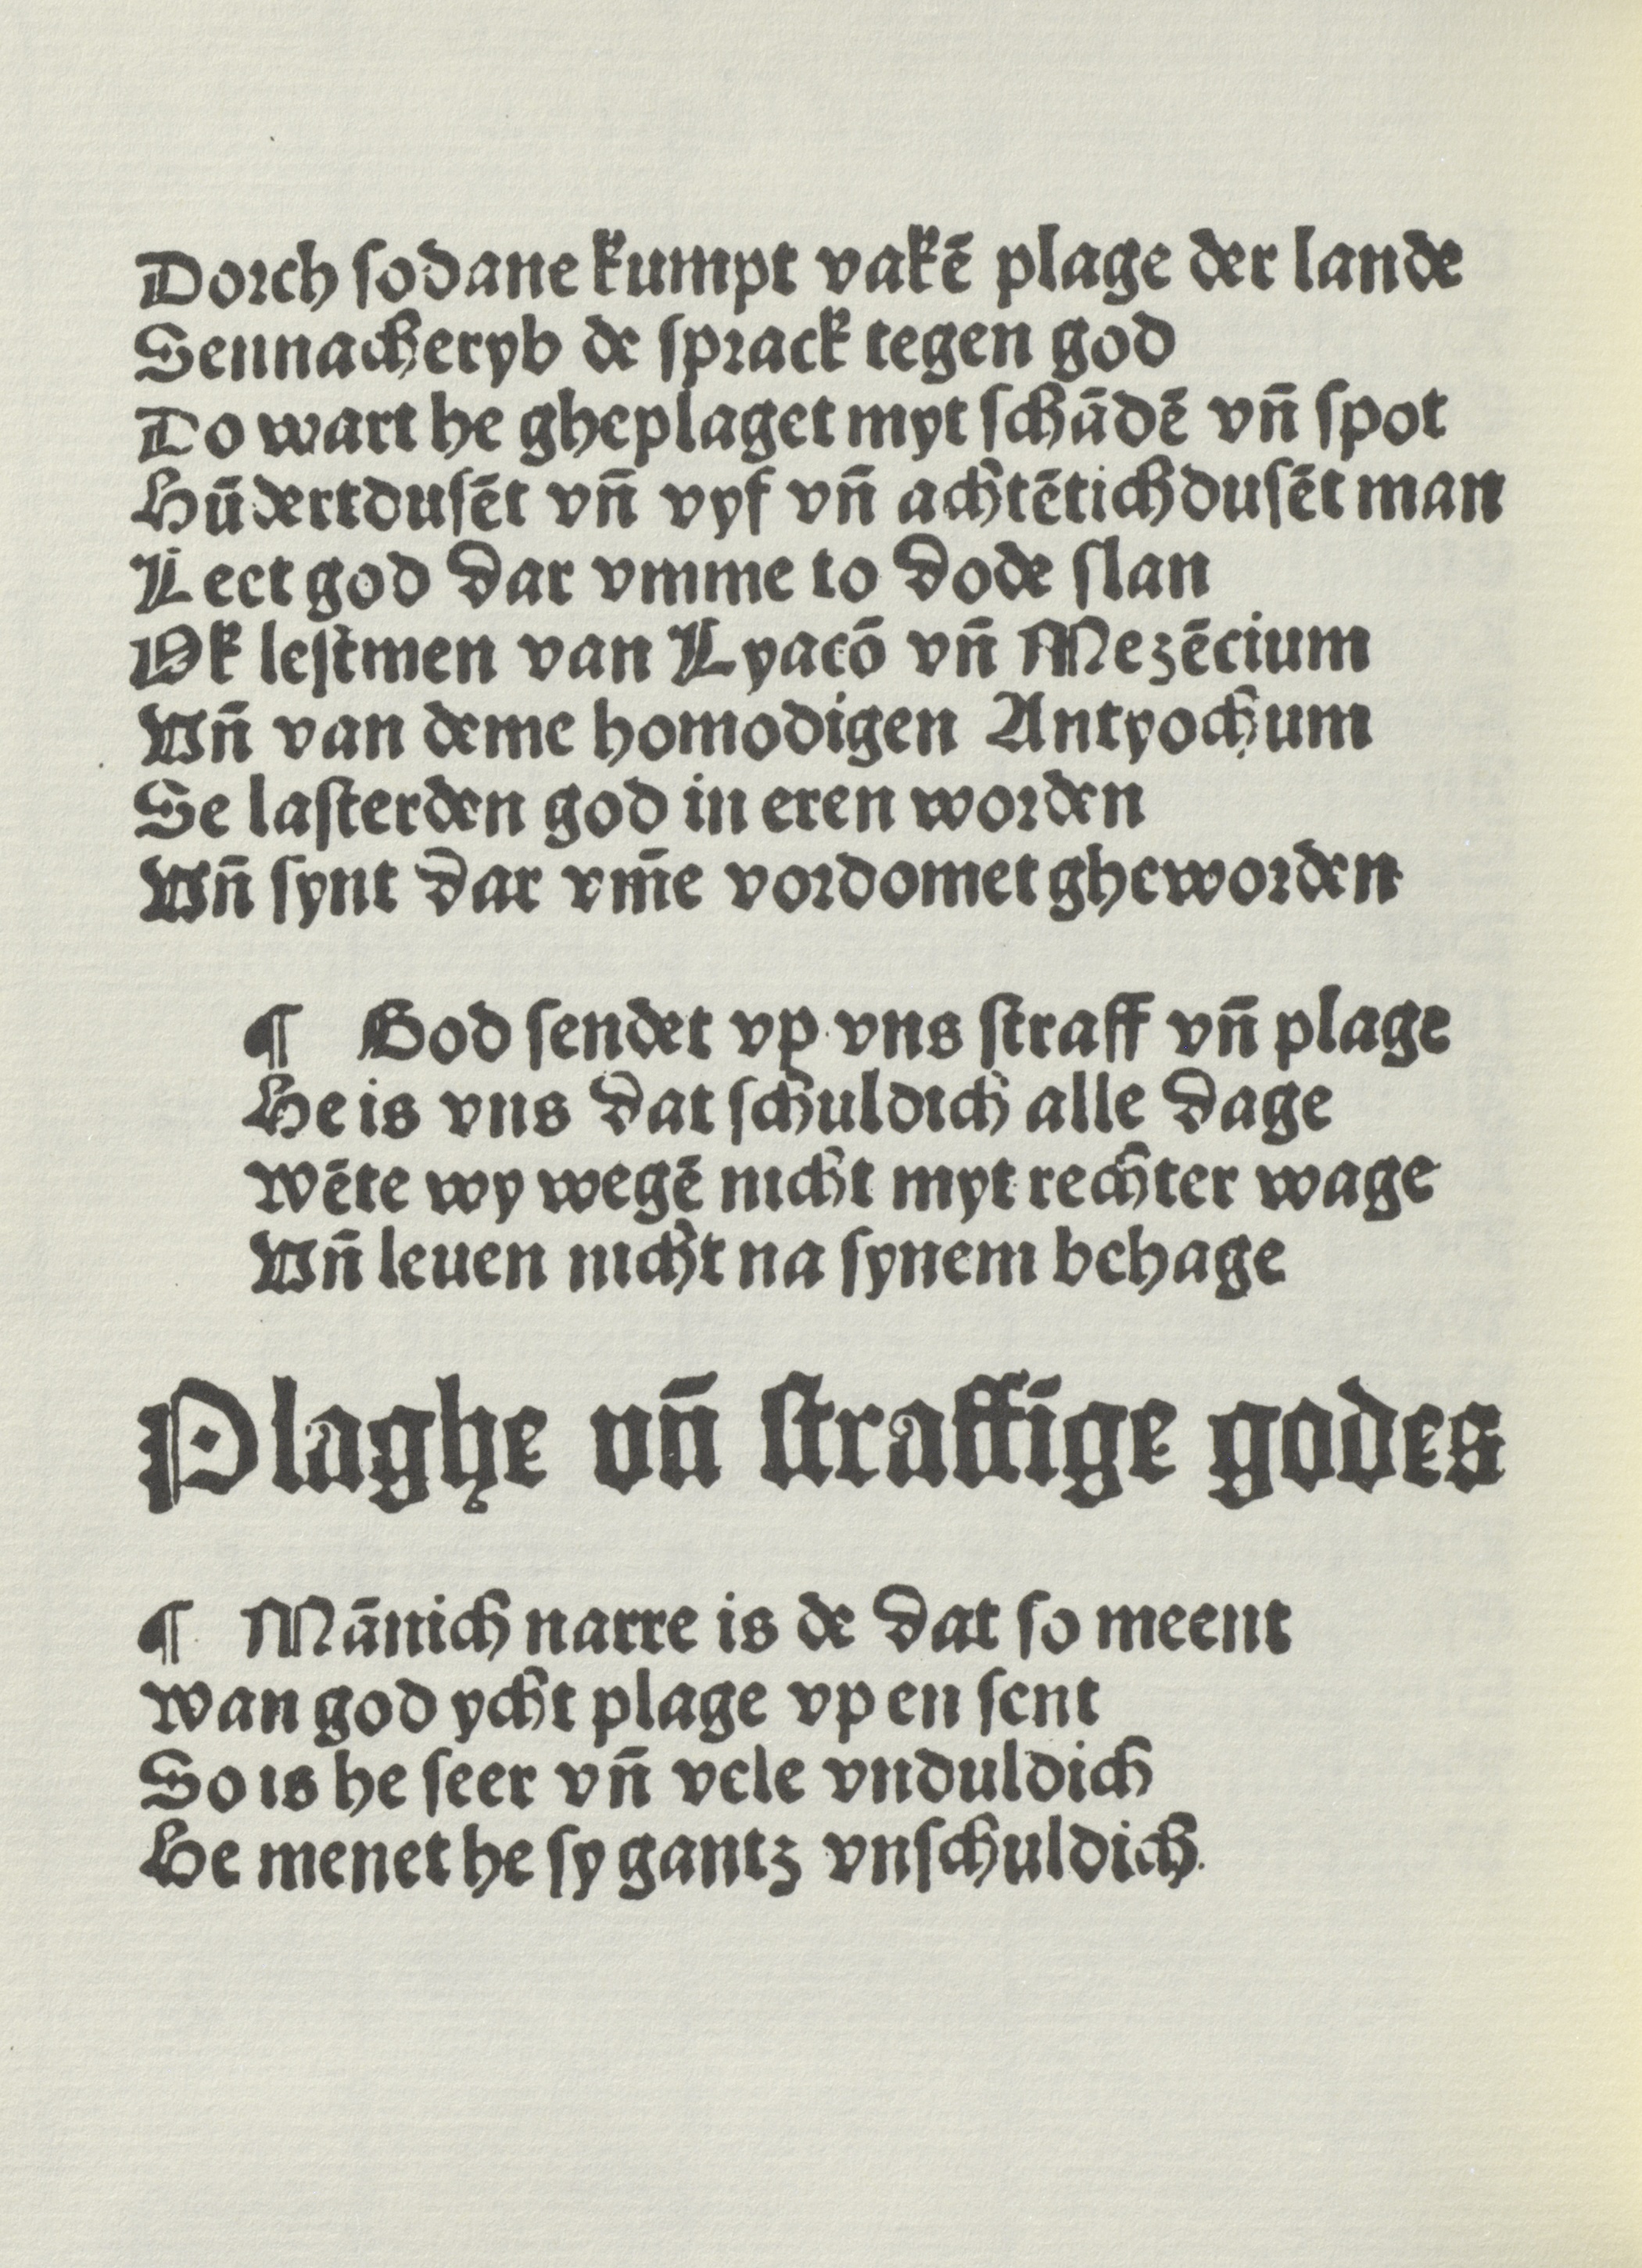 Dorch ſodane kumpt vakē plage der lande
Sennacheryb de ſprack tegen god
Do wart he gheplaget myt ſchādē vñ ſpot
Hūdertduſēt vñ vyf vñ achtētichduſēt man
Leet god dar vmme to dode ſlan
Ok leſtmen van Lyacō vñ Mezēcium
Vñ van deme homodigen Antyochum
Se laſterden god in eren worden
Vñ ſynt dar vm̄e vordomet gheworden
¶ God ſendet vp vns ſtraff vñ plage
He is vns dat ſchuldich alle dage
Wēte wy wegē nicht myt rechter wage
Vñ leuen nicht na ſynem behage
Plaghe vñ ſtraffīge godes
¶ Mānich narre is de dat ſo meent
Wan god ycht plage vp en ſent
So is he ſeer vñ vele vnduldich
He menet he ſy gantz vnſchuldich.